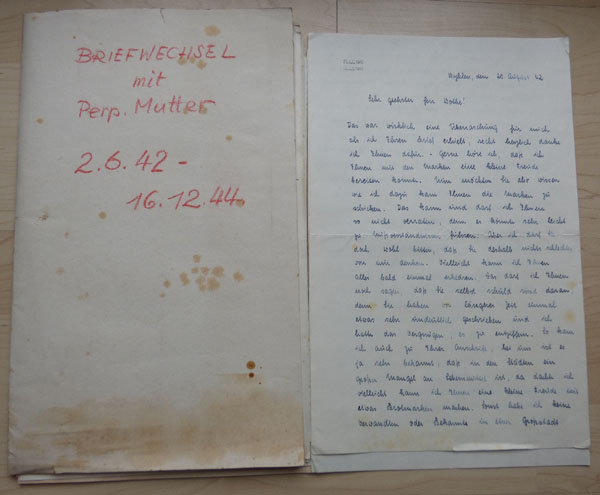 BRIEFWECHSEL
mit
Perp. Mutter
2.6.42 -
16.12.44.
den 20 August 42
Sehr geehrter
Das war wirklich eine Überraschung für mich
als ich Ihren Brief erhielt, recht herzlich danke
ich Ihnen dafür. - Gerne höre ich, daß ich
Ihnen mit den Marken eine kleine Freude
bereiten konnte. Nun möchten Sie also wissen
wie ich dazu kam Ihnen die Marken zu
schicken. Das kann und darf ich Ihnen
so nicht verraten, denn es könnte sehr leicht
zu Mißverständnissen führen. Aber ich darf Sie
doch wohl bitten, daß Sie deshalb nichts schlechtes
von mir denken. Vielleicht kann ich Ihnen
alles bald einmal erklären. Das darf ich Ihnen
noch sagen, daß Sie selbst schuld sind daran
denn Sie haben vor längerer Zeit einmal
etwas sehr undeutlich geschrieben und ich
hatte das Vergnügen, es zu entziffern. So kam
ich auch zu Ihrer Anschrift, bei uns ist es
ja sehr bekannt, daß in den Städten ein
großer Mangel an Lebensmittel ist, da dachte ich
vielleicht kann ich Ihnen eine kleine Freude mit
etwas Brotmarken machen. Sonst habe ich keine
Verwandten oder Bekannte in einer Großstadt